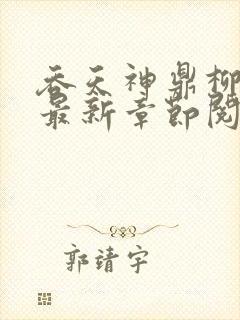 吞天神鼎柳
最新章节阅
郭靖宇